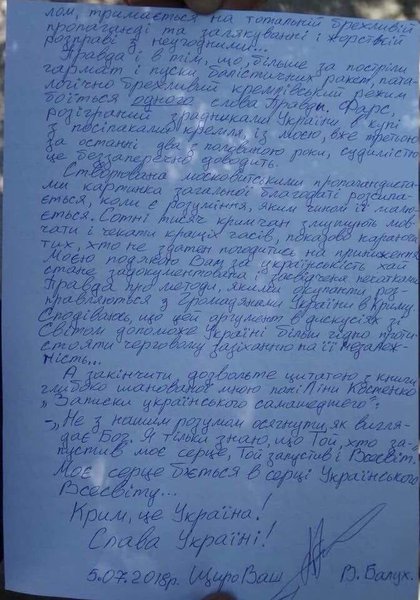 лом, тримається на тотальній брехливій
пропаганді та залякуванні і жорсткій
розправі з неугодними...
Правда і в тім, що, більше за постріли
гармат і пуски балістичних ракет, пато-
логічно брехливий кремлівський режим
боїться одного слова Правди. Фарс,
розіграний зрадниками України в купі
з посіпаками кремля, із моєю, вже третьою
за останні два з половиною роки, судимістю
це беззаперечно доводить.
Створювана московитськими пропагандиста-
ми картинка загальної благодаті розсипа-
ється, коли є розуміння, яким чином її малю-
ється. Сотні тисяч кримчан змушують мов-
чати і чекати кращих часів, показово караючи
тих, хто не здатен погодитись на приниження.
Моєю подякою Вам за українськість хай
стане задокументована і засвідчена
Правда про методи, якими окупанти роз-
правляються з громадянами України в Криму.
Сподіваюсь, що цей аргумент в дискусіях зі
Світом допоможе Україні більш гідно проти-
стояти черговому зазіханню на її Незалеж-
ність...
А закінчити, дозвольте цитатою з книги
глибоко шанованої мною пані Ліни Костенко
„Записки українського самашедшего":
-„Не з нашим розумом осягнути, як вигля-
дає Бог. Я тільки знаю, що Той, хто за-
пустив моє серце, Той запустив і Всесвіт.
Моє серце б'ється в серці Українського
Всесвіту...
Крим, це Україна!
Слава Україні!
5.07.2018р. Щиро Ваш В. Балух.